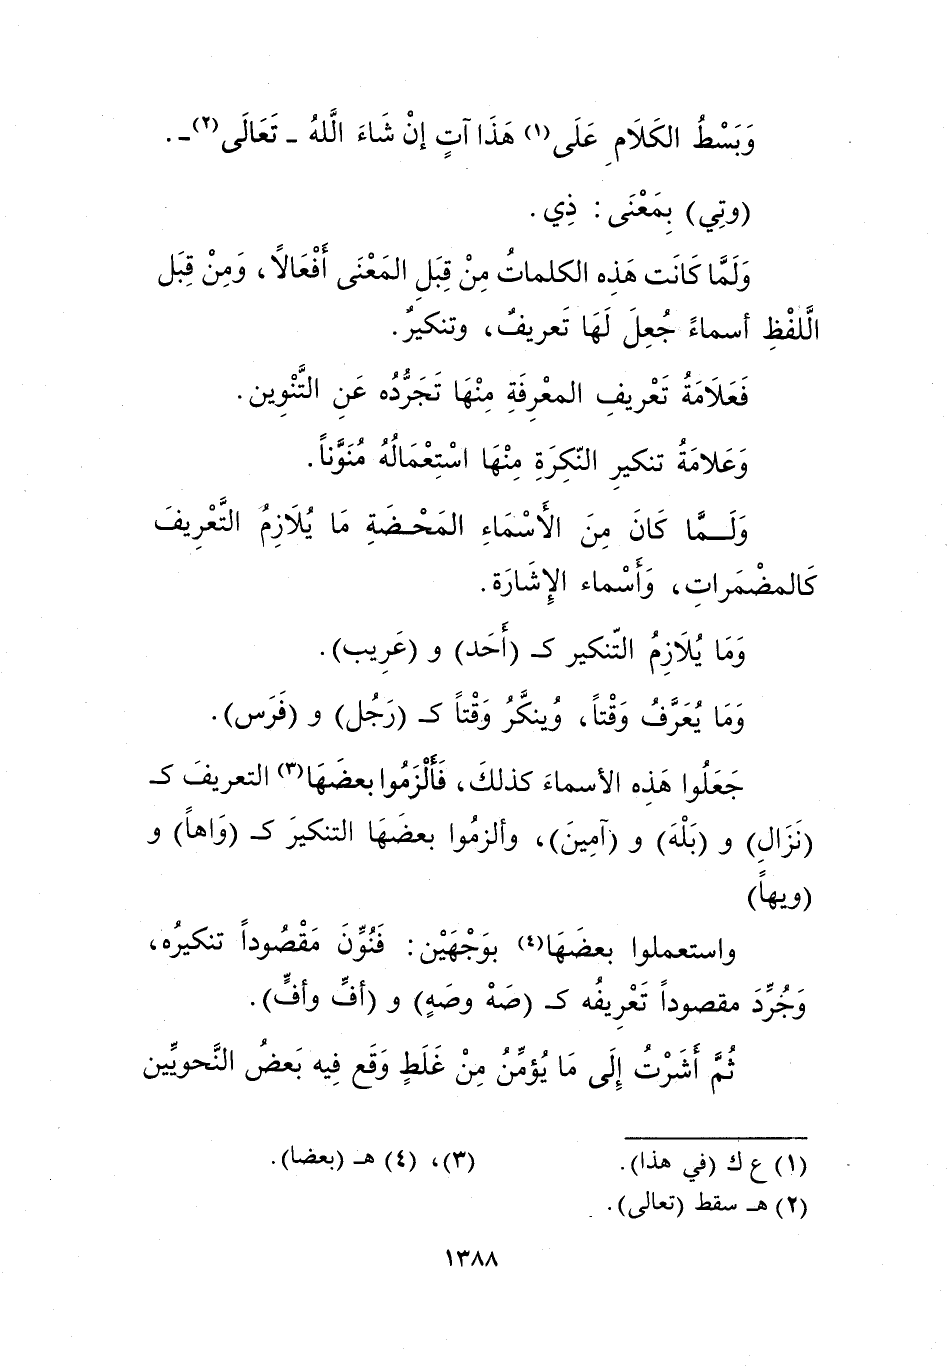 وَبَسْطُ الكَلَامِ عَلَى(١) هَذَا آتٍ إنْ شَاءَ اللَّهُ - تَعَالَى(٢) -.
(وتِي) بِمَعْنَى: ذِي.
وَلَمَّا كَانَت هَذِه الكلماتُ مِنْ قِبَلِ المَعْنَى أفْعَالاً، وَمِنْ قِبَلِ
الَّلفْظِ أسماءً جُعِلَ لَهَا تَعريفٌ، وتنكيرٌ.
فَعَلَامَةُ تَعْريفِ المعْرِفَةِ مِنْهَا تَجَرُّدُه عَنِ التَّنْوِين.
وَعَلامَةُ تنكيرِ النّكِرَةِ مِنْهَا اسْتِعْمَالُهُ مُنَوَّناً.
وَلَـــمَّا كَانَ مِنَ الأَسْمَاءِ المَحْضَةِ مَا يُلَازِمُ التَّعْرِيفَ
كَالمضْمَراتِ، وَأَسْماء الإِشَارَة.
وَمَا يُلَازِمُ التّنكير كـ (أَحَد) و (عَرِيب).
وَمَا يُعَرَّفُ وَقْتاً، وُينكَّرُ وَقْتاً كـ (رَجُل) و (فَرَس).
جَعَلُوا هَذِه الأسماءَ كذلكَ، فَأَلْزَمُوا بعضَهَا(٣) التعريفَ كـ
(نَزَالِ) و (بَلْهَ) و (آمِينَ)، وألزمُوا بعضَهَا التنكيرَ كـ (وَاهاً) و
(ويهاً)
واستعملوا بعضَهَا(٤) بوَجْهَيْن: فَنُوِّنَ مَقْصُوداً تنكيرُه،
وَجُرِّدَ مقصوداً تَعْرِيفُه كـ (صَهْ وصَهٍ) و (أفِّ وأفٍّ).
ثُمَّ أَشَرْتُ إِلَى مَا يُؤمِّنُ مِنْ غَلَطٍ وَقَع فِيه بَعضُ النَّحويِّين
(١) ع ك (في هذا).
(٣)، (٤) هـ (بعضا).
(٢) هـ سقط (تعالى).
١٣٨٨